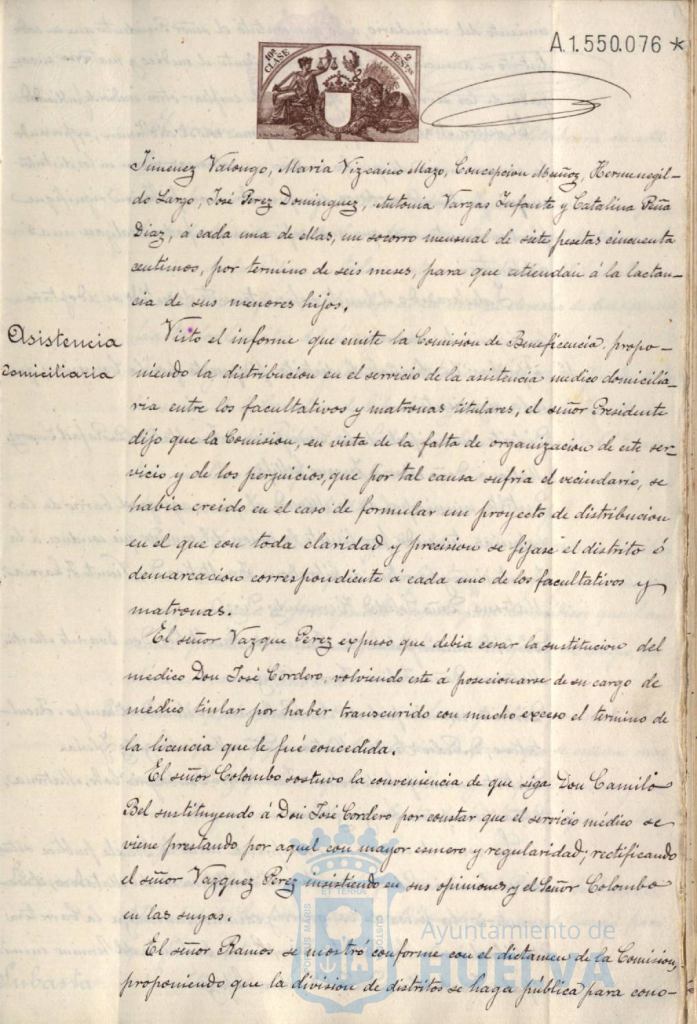 A.1.550.076 *
10ª CLASE
2 PESTAS
Jimenez Valongo, Maria Vizcaino Mazo, Concepcion Muñoz, Hermenegil-
do Largo, José Perez Dominguez, Antonia Vargas Infante y Catalina Peña
Diaz, á cada una de ellas, un socorro mensual de siete pesetas cincuenta
centimos, por termino de seis meses, para que atiendan á la lactan-
cia de sus menores hijos.
Asistencia
domiciliaria
Visto el informe que emite la Comision de Beneficencia, propo-
niendo la distribucion en el servicio de la asistencia medico domicilia-
ria entre los facultativos y matronas titulares, el señor Presidente
dijo que la Comision, en vista de la falta de organizacion de este ser-
vicio y de los perjuicios, que por tal causa sufria el vecindario, se
habia creido en el caso de formular un proyecto de distribucion
en el que con toda claridad y precision se fijase el distrito ó
demarcacion correspondiente á cada uno de los facultativos y
matronas.
El señor Vazque Perez expuso que debia cesar la sustitucion del
medico Don José Cordero, volviendo este á posecionarse de su cargo de
médico titular por haber transcurido con mucho exceso el termino de
la licencia que le fué concedida.
El señor Colombo sostuvo la conveniencia de que siga Don Camilo
Bel sustituyendo á Don José Cordero por constar que el servicio médico se
viene prestando por aquel con mayor esmero y regularidad; rectificando
el señor Vazquez Perez insistiendo en sus opiniones, y el Señor Colombo
en las suyas.
El señor Ramos se mostró conforme con el dictamen de la Comision,
proponiendo que la division de distritos se haga pública para cono-
Ayuntamiento de
HUELVA